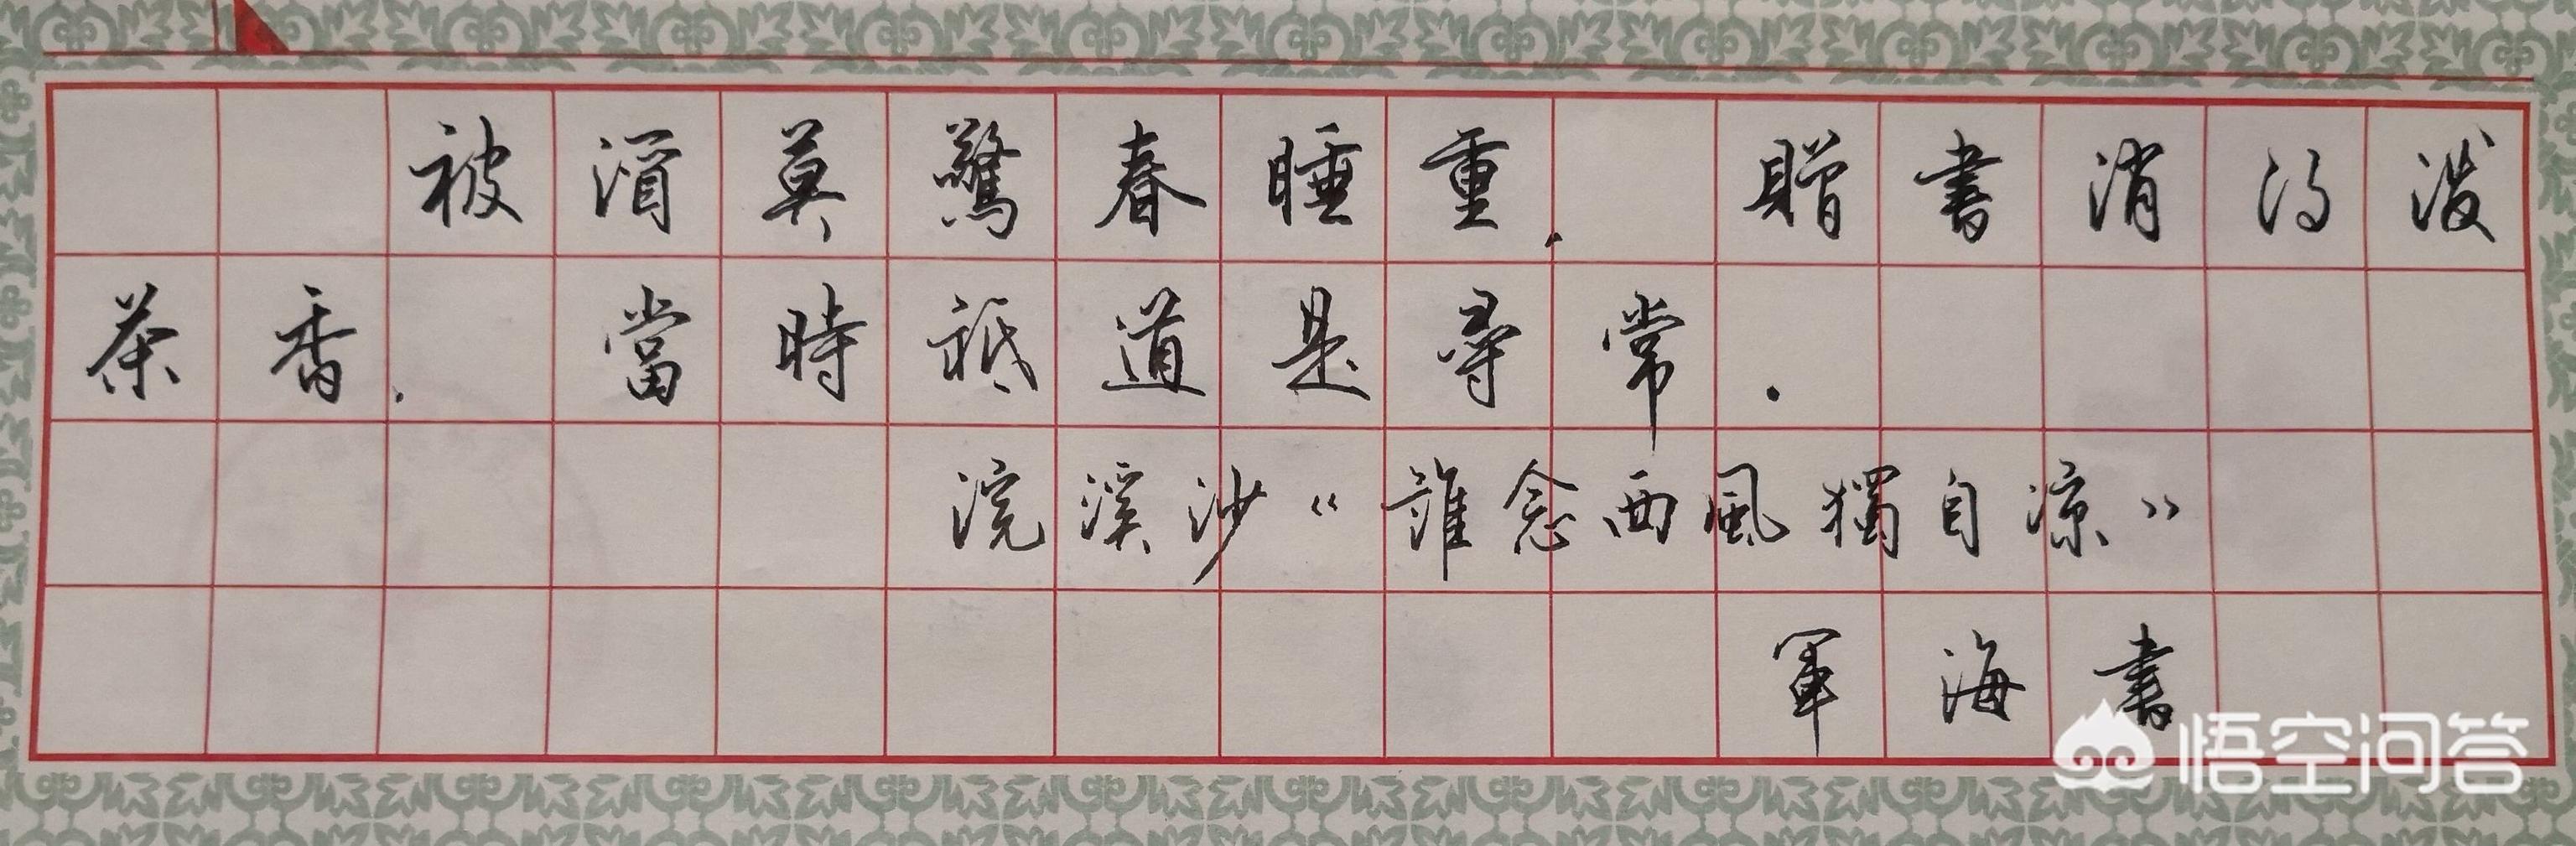 被酒莫驚春睡重. 贈書消淂潑
茶香. 當時祗道是尋常.
浣溪沙《誰念西風獨自涼》
軍海書
悟空问答